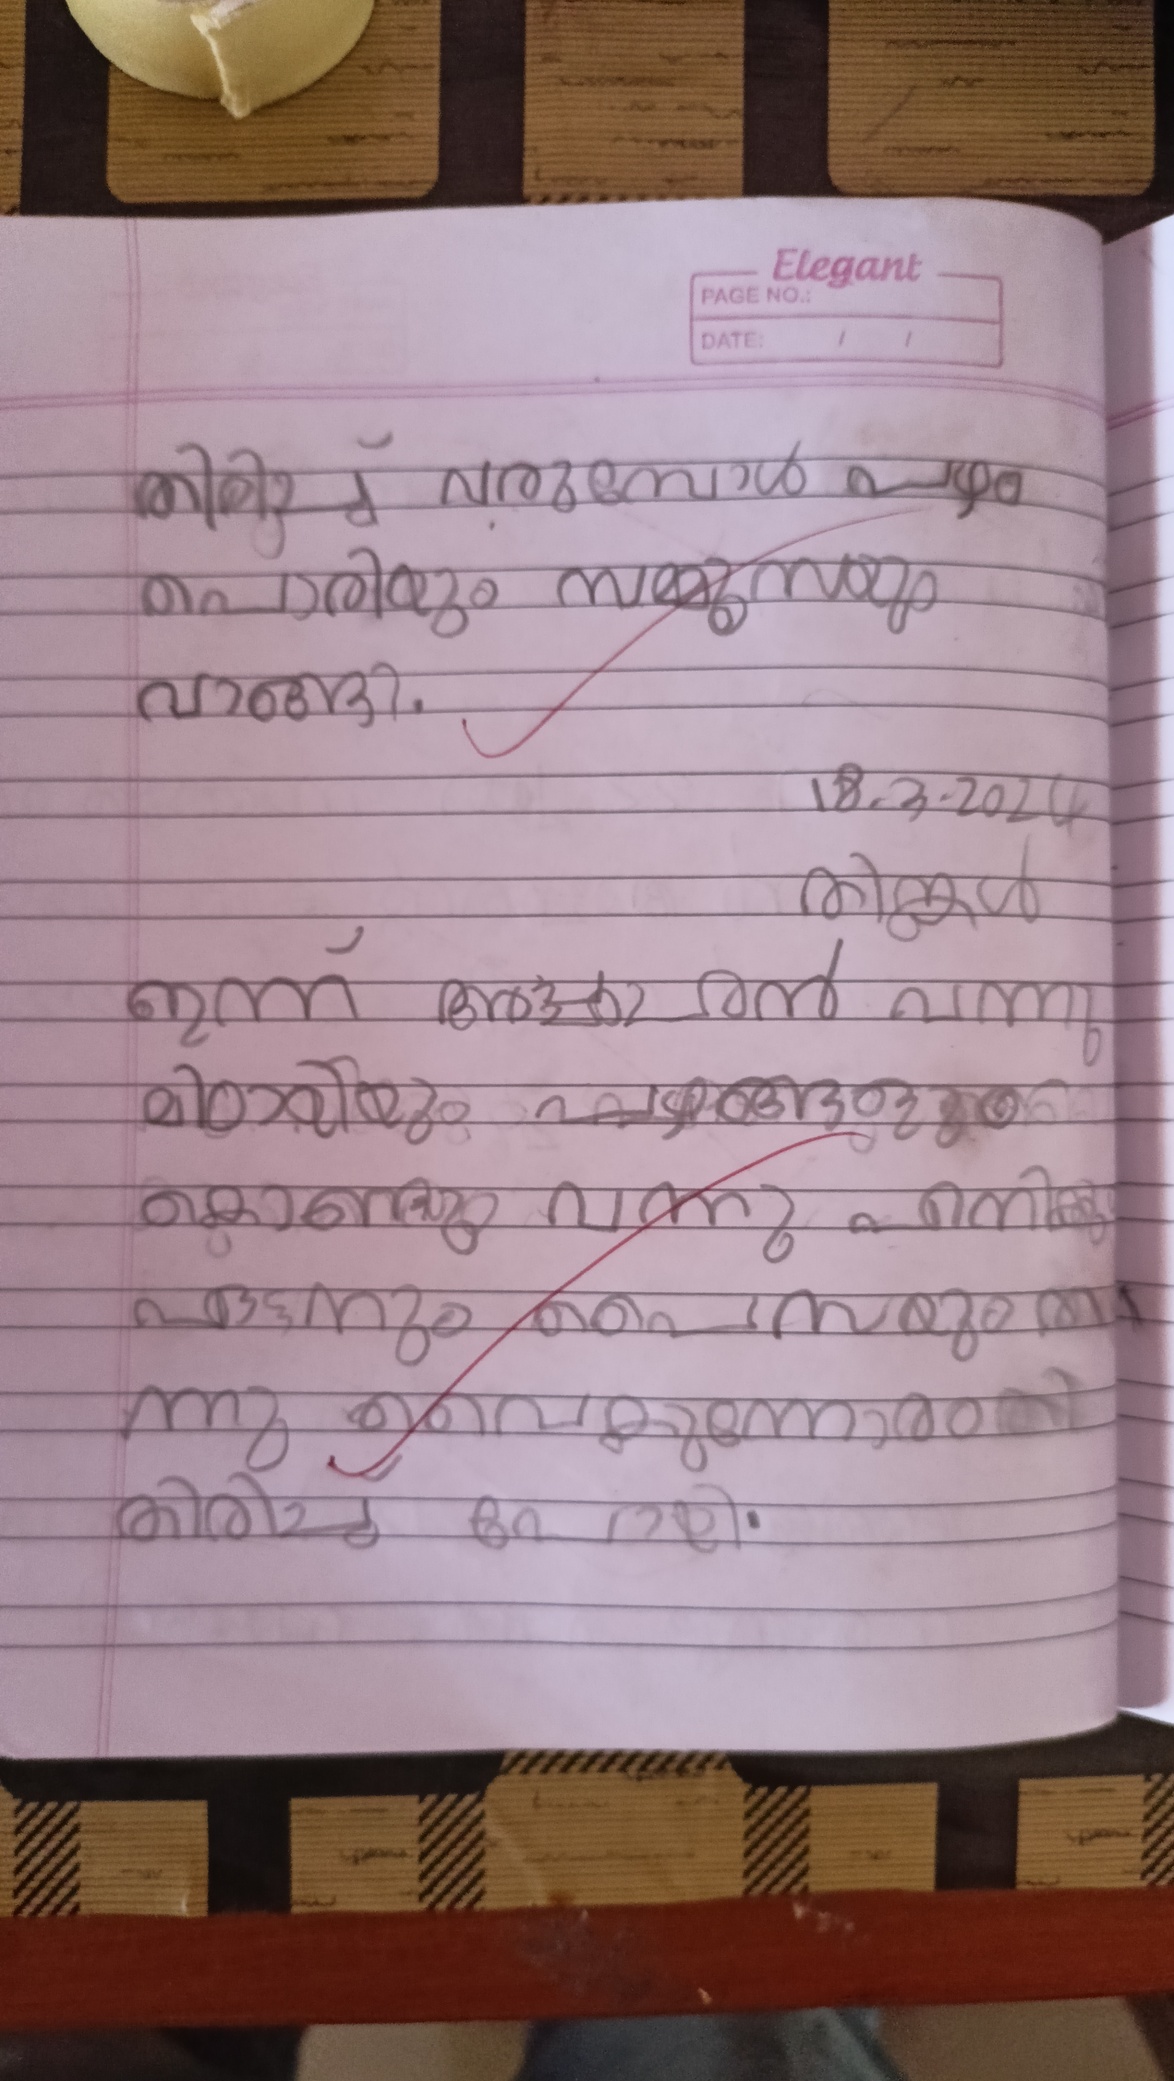 Elegant
PAGE NO.:
DATE: / /
തിരിച്ച് വരുമ്പോൾ പഴം
പൊരിയും സമൂസയും
വാങ്ങി.
18.3.2024
തിങ്കൾ
ഇന്ന് വന്നു
മിഠായിയും പഴങ്ങളും
കൊണ്ടും വന്നു എനിക്കു
പേനയും പൈസയും ത
ന്നു വൈകുന്നേരം
തിരിച്ചു പോയി.